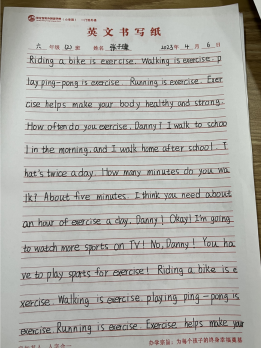 英文书写纸
六 年级 (2) 班 姓名 2023 年 4 月 6 日
Riding a bike is exercise. Walking is exercise. p
lay ping-pong is exercise. Running is exercise. Exer
cise helps make your body healthy and strong.
How often do you exercise. Danny! I walk to schoo
l in the morning. and I walk home after school. T
hat's twice a day. How many minutes do you wa
lk? About five minutes. I think you need about
an hour of exercise a day. Danny! Okay! I'm going
to watch more sports on TV! No, Danny! You ha
ve to play sports for exercise! Riding a bike is e
xercise. Walking is exercise. playing ping-pong is
exercise. Running is exercise. Exercise helps make your
办学宗旨：为每个孩子的终身幸福奠基